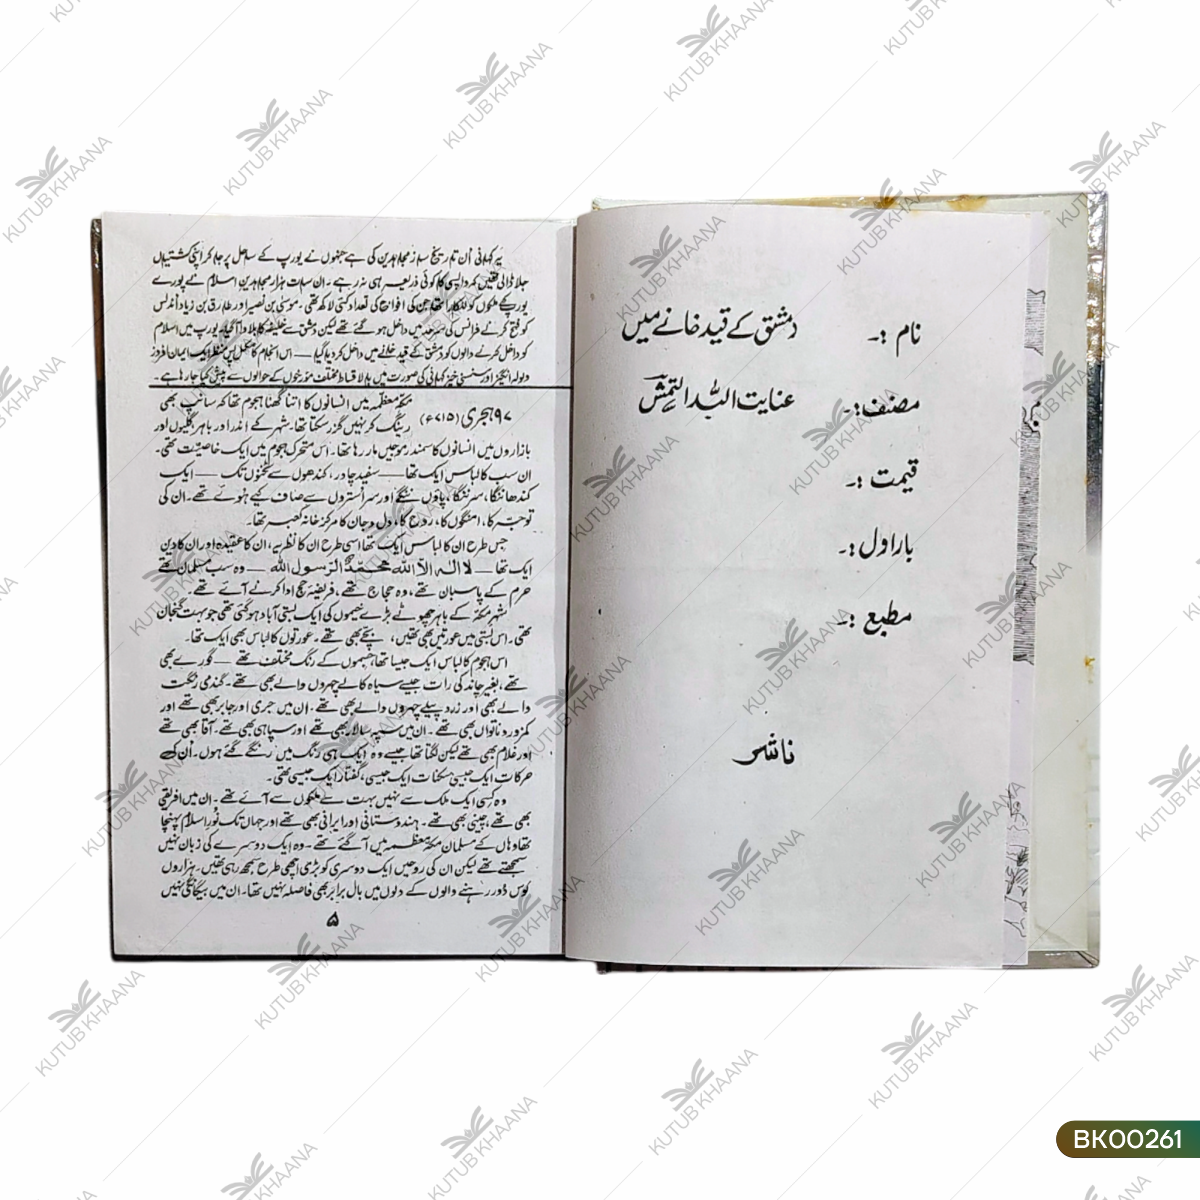 نام :۔ دمشق کے قید خانے میں
مصنف :۔ عنایت اللہ التمش
قیمت :۔
بار اول :۔
مطبع :۔
ناشر
یہ کہانی اُن تاریخ ساز مجاہدین کی ہے جنہوں نے یورپ کے ساحل پر جا کر اپنی کشتیاں
جلا ڈالی تھیں کہ واپسی کا کوئی ذریعہ ہی نہ رہے۔ ان سات ہزار مجاہدین اسلام نے پورے
یورپ کے ملکوں کو للکارا تھا جن کی افواج کی تعداد کئی لاکھ تھی۔ موسیٰ بن نصیر اور طارق بن زیاد اُندلس
کو فتح کر کے فرانس کی سرحد میں داخل ہو گئے تھے لیکن دمشق سے خلیفہ کا بلاوا آ گیا۔ یورپ میں اسلام
کو داخل کرنے والوں کو دمشق کے قید خانے میں داخل کر دیا گیا — اس انجام کا مکمل پس منظر ایک ایمان افروز
ولولہ انگیز اور سنسنی خیز کہانی کی صورت میں بالاقساط مختلف مورخوں کے حوالوں سے پیش کیا جا رہا ہے۔
۹۷ ہجری (۷۱۵ء) مکہ معظمہ میں انسانوں کا اتنا گھنا ہجوم تھا کہ سانپ بھی
رینگ کر نہیں گزر سکتا تھا۔ شہر کے اندر اور باہر گلیوں اور
بازاروں میں انسانوں کا سمندر موجیں مار رہا تھا۔ اس متحرک ہجوم میں ایک خاصیت تھی۔
ان سب کا لباس ایک تھا — سفید چادر، کندھوں سے ٹخنوں تک — ایک
کندھا ننگا، سر ننگا، پاؤں ننگے اور سر اُستروں سے صاف کیے ہوئے تھے۔ ان کی
توجہ کا، امنگوں کا، روح کا، دل و جان کا مرکز خانہ کعبہ تھا۔
جس طرح ان کا لباس ایک تھا اسی طرح ان کا نظریہ، ان کا عقیدہ اور ان کا دین
ایک تھا — لا الہ الا اللہ محمد الرسول اللہ — وہ سب مسلمان تھے
حرم کے پاسبان تھے، وہ حجاج تھے، فریضہ حج ادا کرنے آئے تھے۔
شہر مکہ کے باہر چھوٹے بڑے خیموں کی ایک بستی آباد ہو گئی تھی جو بہت گنجان
تھی۔ اس بستی میں عورتیں بھی تھیں، بچے بھی تھے۔ عورتوں کا لباس بھی ایک تھا۔
اس ہجوم کا لباس ایک جیسا تھا، جسموں کے رنگ مختلف تھے — گورے بھی
تھے، بغیر چاند کی رات جیسے سیاہ کالے چہروں والے بھی تھے۔ گندمی رنگت
والے بھی اور زرد پیلے چہروں والے بھی تھے۔ ان میں جری اور جابر بھی تھے اور
کمزور و ناتواں بھی تھے۔ ان میں سپہ سالار بھی تھے اور سپاہی بھی تھے۔ آقا بھی تھے
اور غلام بھی تھے لیکن لگتا تھا جیسے وہ ایک ہی رنگ میں رنگے گئے ہوں۔ اُن کی
حرکات ایک جیسی سکنات ایک جیسی، گفتار ایک جیسی تھی۔
وہ کسی ایک ملک سے نہیں بہت سے ملکوں سے آئے تھے۔ ان میں افریقی
بھی تھے، چینی بھی تھے۔ ہندوستانی اور ایرانی بھی تھے اور جہاں تک نور اسلام پہنچا
تھا وہاں کے مسلمان مکہ معظمہ میں آ گئے تھے۔ وہ ایک دوسرے کی زبان نہیں
سمجھتے تھے لیکن ان کی روحیں ایک دوسری کو بڑی اچھی طرح سمجھ رہی تھیں۔ ہزاروں
کوس دُور رہنے والوں کے دلوں میں بال برابر بھی فاصلہ نہیں تھا۔ ان میں بیگانگی نہیں
۵
KUTUB KHAANA
BK00261